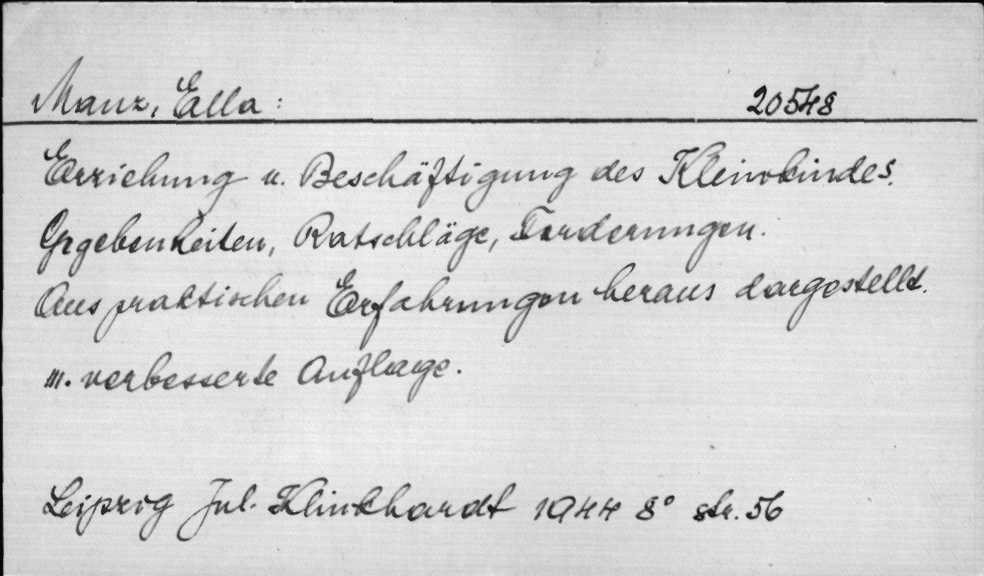 Manz, Ella: 20548
Erziehung u. Beschäftigung des Kleinkindes.
Gegebenheiten, Ratschläge, Forderungen.
Aus praktischen Erfahrungen heraus dargestellt.
III. verbesserte Auflage.
Leipzig Jul. Klinkhardt 1944 8° str. 56